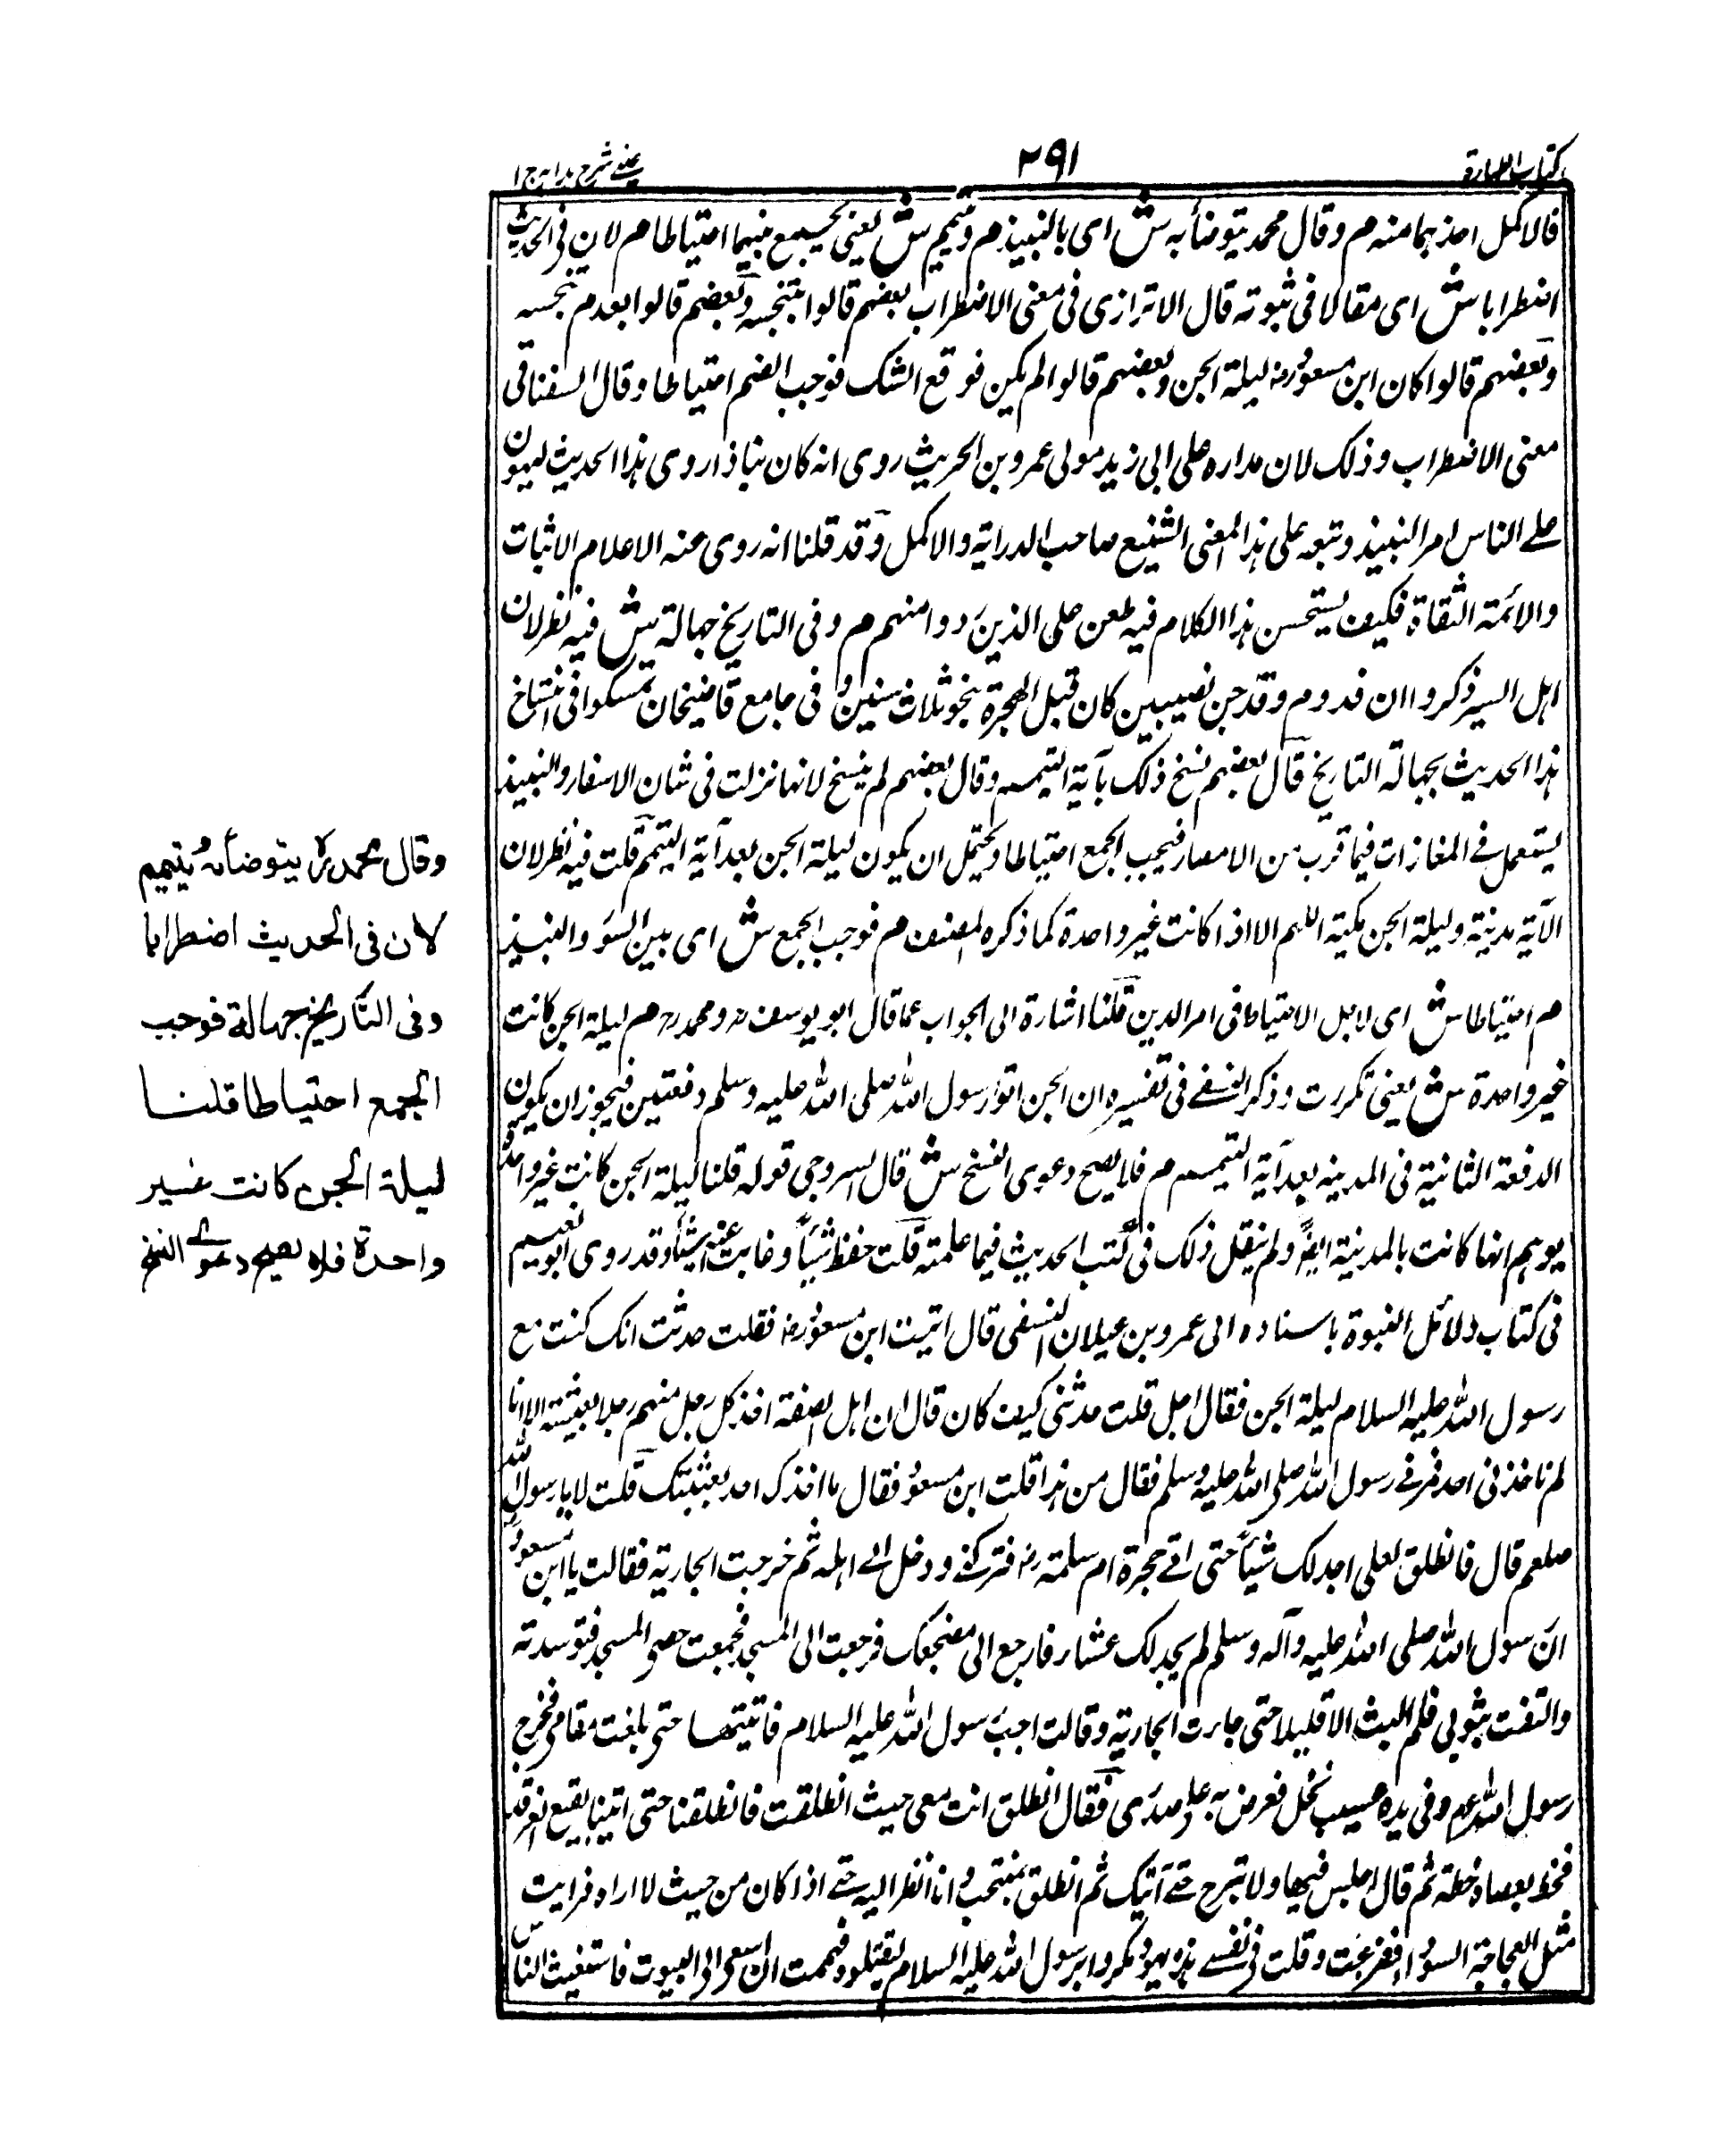 كتاب الطهارة
٢٩١
عينى شرح هداية ج ١
فالاكمل اخذهما منه م وقال محمد يتوضأ به ش اى بالنبيذ م ويتيمم ش يعنى يجمع بينهما احتياطا م لان فى الحديث
اضطرابا ش اى مقالا فى ثبوته قال الاترازى فى معنى الاضطراب بعضهم قالوا بتنجسه وبعضهم قالوا بعدم تنجسه
وبعضهم قالوا كان ابن مسعود رض ليلة الجن وبعضهم قالوا لم يكن فوقع الشك فوجب الضم احتياطا وقال السغناقى
معنى الاضطراب وذلك لان مداره على ابى زيد مولى عمرو بن الحريث روى انه كان نباذا روى هذا الحديث ليهون
على الناس امر النبيذ وتبعه على هذا المعنى الشنيع صاحب الدراية والاكمل وقد قلنا انه روى عنه الاعلام الاثبات
والائمة الثقاة فكيف يستحسن هذا الكلام فيه طعن على الذين رووا منهم م وفى التاريخ جهالة ش فيه نظر لان
اهل السير ذكروا ان قدوم وفد جن نصيبين كان قبل الهجرة بنحو ثلاث سنين و فى جامع قاضيخان تمسكوا فى انتساخ
هذا الحديث بجهالة التاريخ قال بعضهم نسخ ذلك بآية التيمم وقال بعضهم لم ينسخ لانها نزلت فى شان الاسفار والنبيذ
يستعمل فى المفازات فيما قرب من الامصار فيجب الجمع احتياطا ويحتمل ان يكون ليلة الجن بعد آية التيمم قلت فيه نظر لان
الآية مدنية وليلة الجن مكية اللهم الا اذا كانت غير واحدة كما ذكره المصنف م فوجب الجمع ش اى بين التوضؤ والنبيذ
م احتياطا ش اى لاجل الاحتياط فى امر الدين قلنا اشارة الى الجواب عما قال ابو يوسف رح ومحمد رح م ليلة الجن كانت
غير واحدة ش يعنى تكررت وذكر النسفى فى تفسيره ان الجن اتوا رسول الله صلى الله عليه وسلم دفعتين فيجوز ان يكون
الدفعة الثانية فى المدينة بعد آية التيمم م فلا يصح دعوى النسخ ش قال السروجى قوله قلنا ليلة الجن كانت غير واحدة
يوهم انها كانت بالمدينة ايضا ولم ينقل ذلك فى كتب الحديث فيما علمته قلت حفظ شيئا وغابت عنه اشياء وقد روى ابو نعيم
فى كتاب دلائل النبوة باسناده الى عمرو بن عيلان النسفى قال اتيت ابن مسعود رض فقلت حدثت انك كنت مع
رسول الله عليه السلام ليلة الجن فقال اجل قلت حدثنى كيف كان قال ان اهل الصفة اخذ كل رجل منهم رجلا بعشيته الا انا
لم ياخذنى احد فمر فى رسول الله صلى الله عليه وسلم فقال من هذا قلت ابن مسعود فقال ما اخذك احد بعشيتك قلت لا يا رسول الله
صلعم قال فانطلق لعلى اجد لك شيئا حتى اتى حجرة ام سلمة رض فتركنى ودخل الى اهله ثم خرجت الجارية فقالت يا ابن مسعود
ان رسول الله صلى الله عليه وآله وسلم لم يجد لك عشاء فارجع الى مضجعك فرجعت الى المسجد فجمعت حصى المسجد فتوسدته
والتفت بثوبى فلم البث الا قليلا حتى جاءت الجارية وقالت اجب رسول الله عليه السلام فاتبعتها حتى بلغت مقامى فخرج
رسول الله عم وفى يده عسيب نخل فعرض به على صدرى فقال انطلق انت معى حيث انطلقت فانطلقنا حتى اتينا بقيع الغرقد
فخط بعصاه خطة ثم قال اجلس فيها ولا تبرح حتى آتيك ثم انطلق وانا انظر اليه حتى اذا كان من حيث لا اراه فرايت
مثل العجاجة السوداء ففزعت وقلت فى نفسى هذه يهود مكروا برسول الله عليه السلام ليقتلوه فهممت ان اسعى الى البيوت فاستغيث الناس
وقال محمد رح يتوضأ به ويتيمم
لان فى الحديث اضطرابا
وفى التاريخ جهالة فوجب
الجمع احتياطا قلنا
ليلة الجن كانت غير
واحدة فلا يصح دعوى النسخ